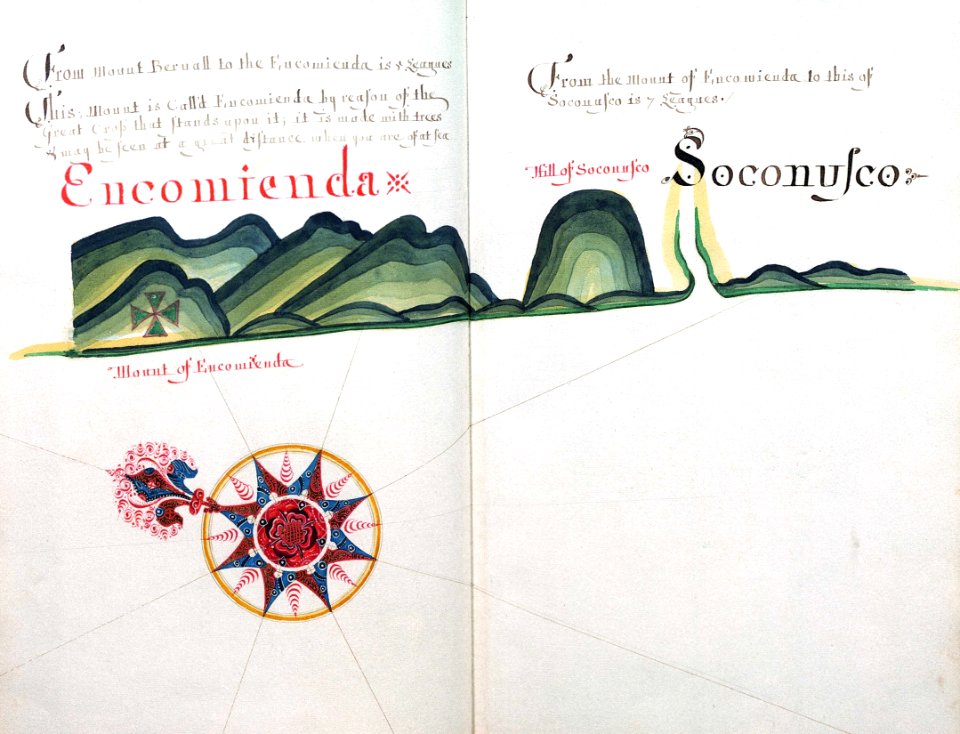 From Mount Bernall to the Encomienda is 4 Leagues
This: Mount is Call'd Encomienda by reaſon of the
Great Croſs that ſtands upon it; it is made with trees
& may be ſeen at a great diſtance when you are of at ſea
Encomienda
Mount of Encomienda
From the Mount of Encomienda to this of
Soconuſco is 7 Leagues.
Hill of Soconuſco
Soconuſco